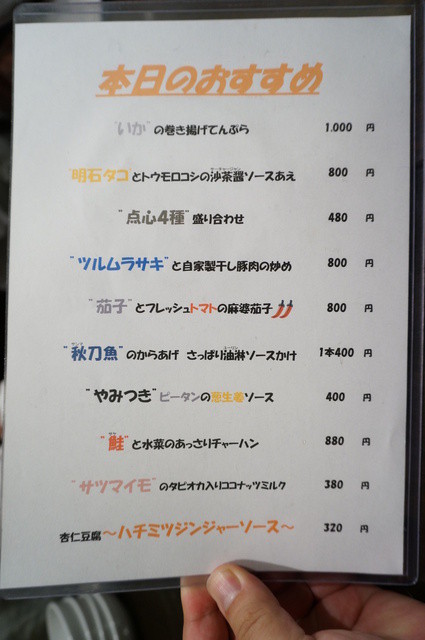 本日のおすすめ
"いか"の巻き揚げてんぷら 1.000 円
明石タコとトウモロコシの沙茶醤ソースあえ 800 円
"点心4種"盛り合わせ 480 円
"ツルムラサキ"と自家製干し豚肉の炒め 800 円
"茄子"とフレッシュトマトの麻婆茄子 800 円
"秋刀魚"のからあげ さっぱり油淋ソースかけ 1本400 円
"やみつき"ピータンの葱生姜ソース 400 円
"鮭"と水菜のあっさりチャーハン 880 円
"サツマイモ"のタピオカ入りココナッツミルク 380 円
杏仁豆腐～ハチミツジンジャーソース～ 320 円